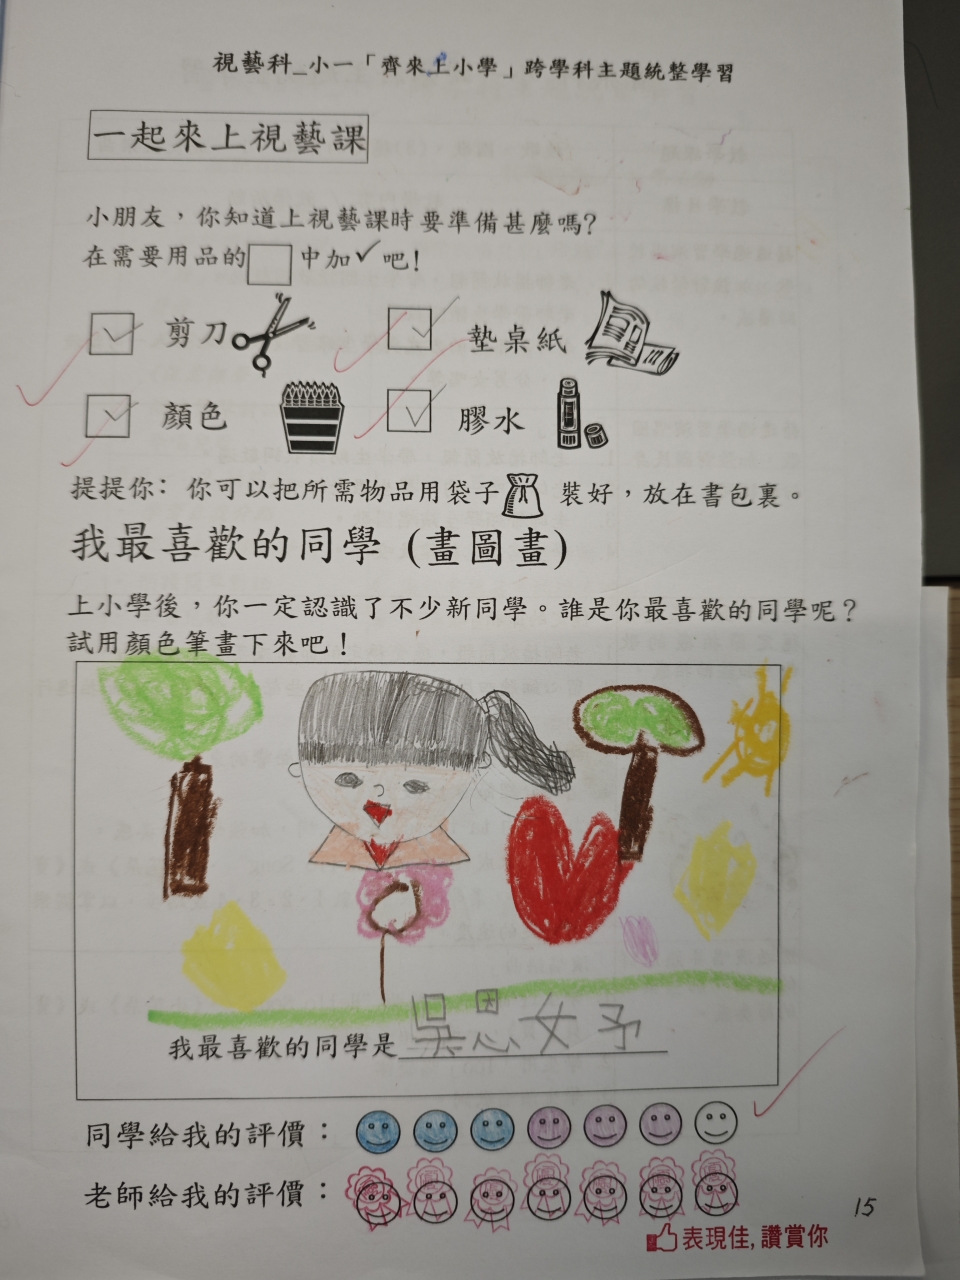 視藝科_小一「齊來上小學」跨學科主題統整學習
一起來上視藝課
小朋友，你知道上視藝課時要準備甚麼嗎？
在需要用品的 中加✓吧！
剪刀 墊桌紙
顏色 膠水
提提你：你可以把所需物品用袋子 裝好，放在書包裏。
我最喜歡的同學 (畫圖畫)
上小學後，你一定認識了不少新同學。誰是你最喜歡的同學呢？
試用顏色筆畫下來吧！
我最喜歡的同學是 吳恩妤
同學給我的評價：
老師給我的評價：
15
表現佳,讚賞你